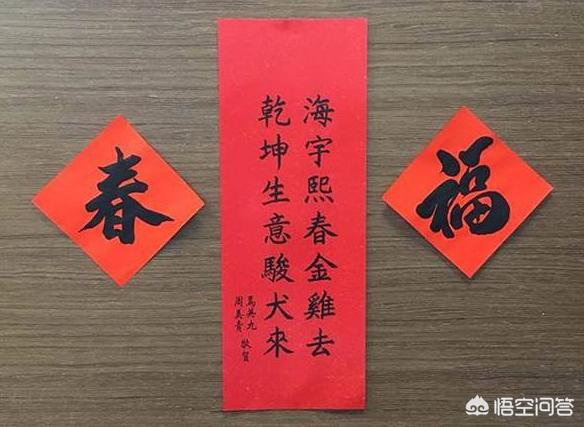 福
海宇熙春金雞去
乾坤生意駿犬來
馬英九
周美青
敬賀
春
悟空问答